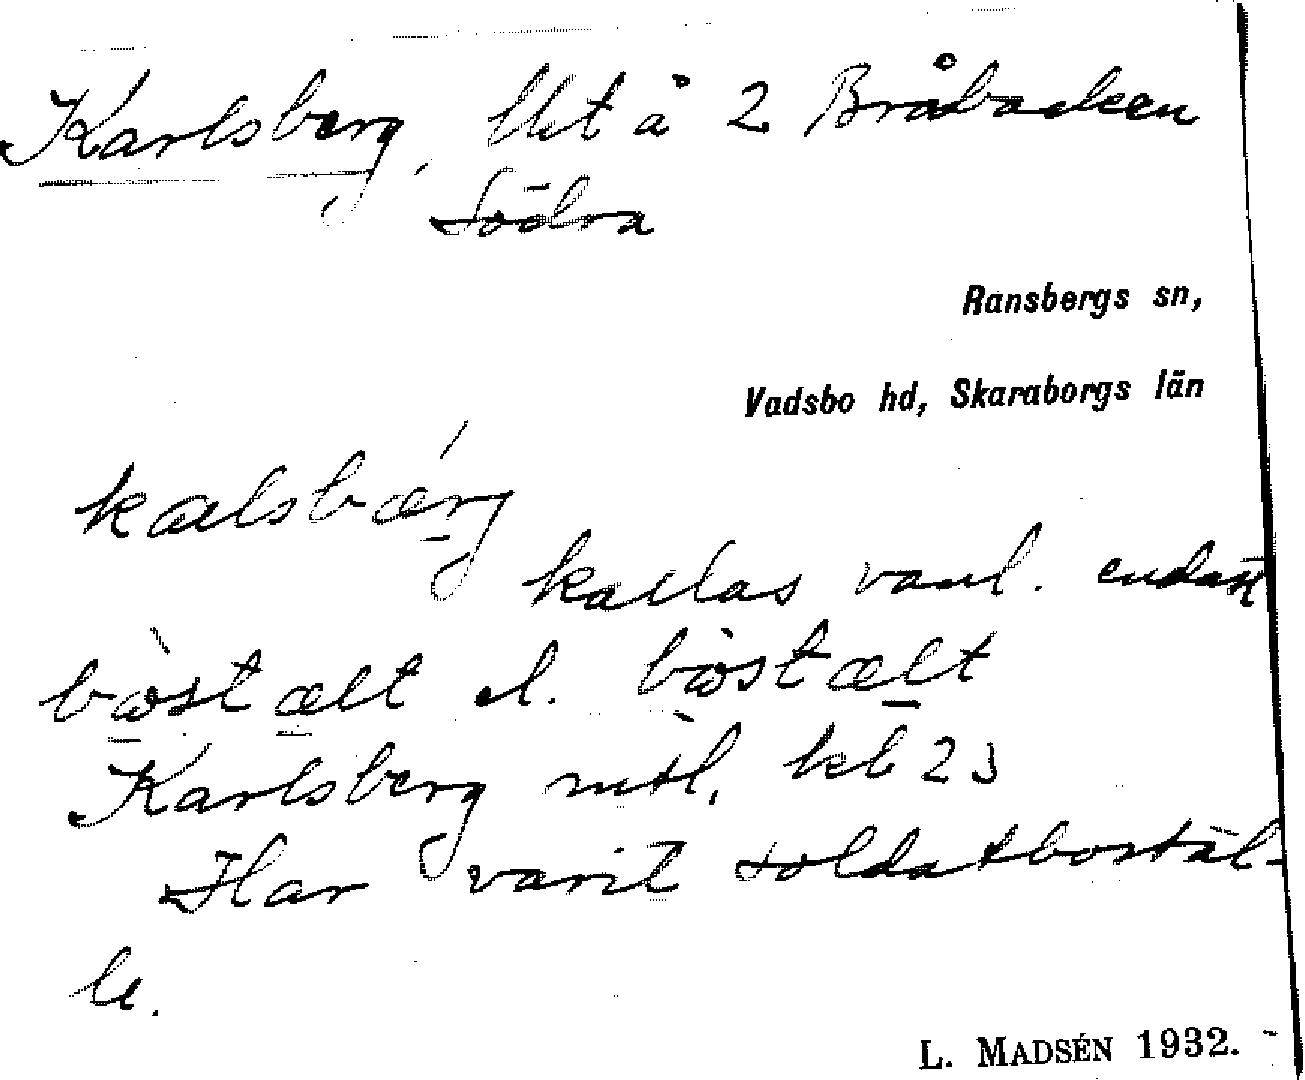 Karlsberg, lht å 2 Bråbacken
Södra
Ransbergs sn,
Vadsbo hd, Skaraborgs län
kallas vanl. endast
el.
Karlsberg mtl, kb 23
Har varit soldatboställ-
le.
L. MADSÉN 1932.